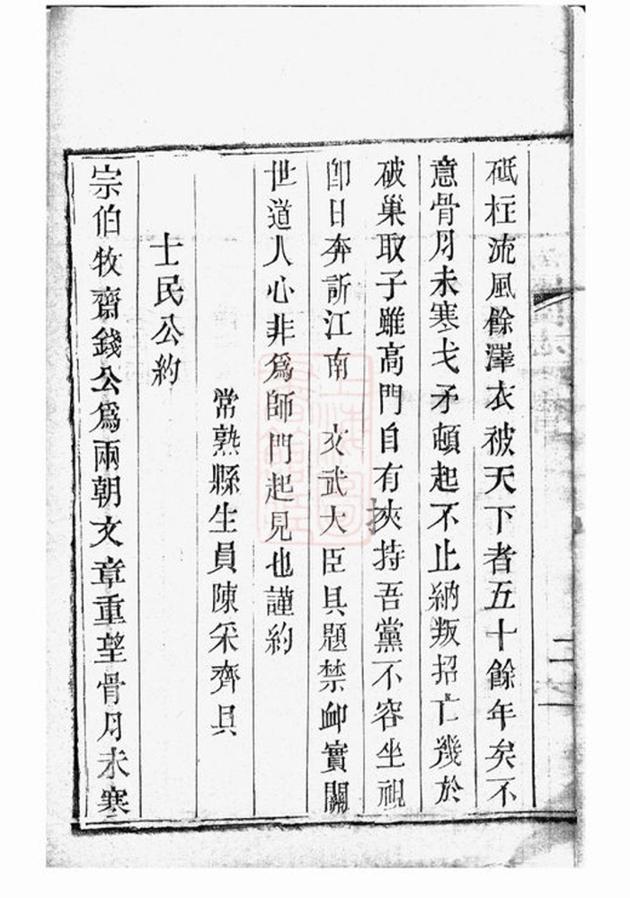 砥柱流風餘澤衣被天下者五十餘年矣不
意骨月未寒戈矛頓起不止納叛招亡幾於
破巢取子雖高門自有挾持吾黨不容坐視
卽日奔訴江南　文武大臣具題禁卹實關
世道人心非爲師門起見也謹約
常熟縣生員陳采齊具
士民公約
宗伯牧齋錢公爲兩朝文章重望骨月未寒
二